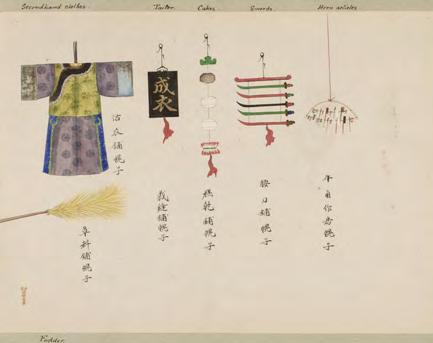 Secondhand clothes.
Tailor
Cakes
Swords
Horn articles
成衣
估衣鋪幌子
裁縫鋪幌子
糕乾鋪幌子
腰刀鋪幌子
牛角作房幌子
草料鋪幌子
Fodder